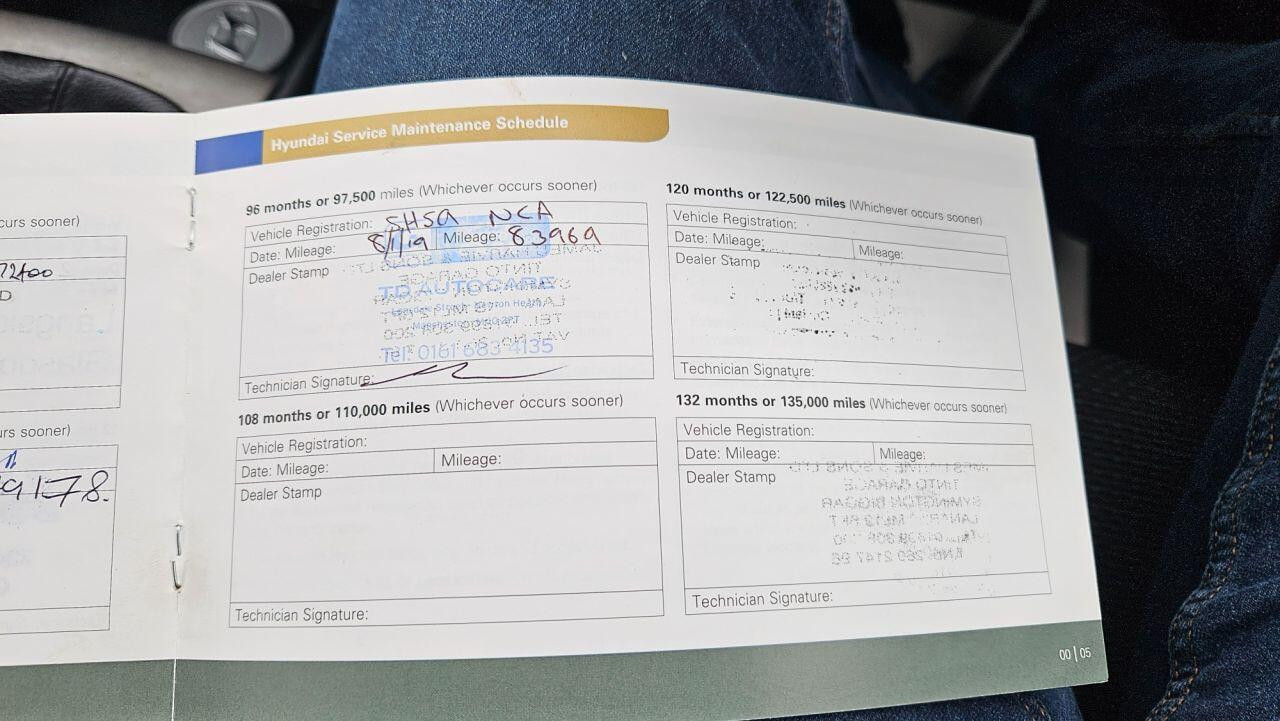 Hyundai Service Maintenance Schedule
curs sooner)
72400
D
urs sooner)
9178.
96 months or 97,500 miles (Whichever occurs sooner)
Vehicle Registration: SH59 NCA
Date: Mileage: 8/1/19 Mileage: 83969
Dealer Stamp
TD AUTOCARE
Tel: 0161 683 4135
Technician Signature:
108 months or 110,000 miles (Whichever occurs sooner)
Vehicle Registration:
Date: Mileage: Mileage:
Dealer Stamp
Technician Signature:
120 months or 122,500 miles (Whichever occurs sooner)
Vehicle Registration:
Date: Mileage: Mileage:
Dealer Stamp
Technician Signature:
132 months or 135,000 miles (Whichever occurs sooner)
Vehicle Registration:
Date: Mileage: Mileage:
Dealer Stamp
TINTO GARAGE
SYMINGTON BIGGAR
Technician Signature:
00 | 05